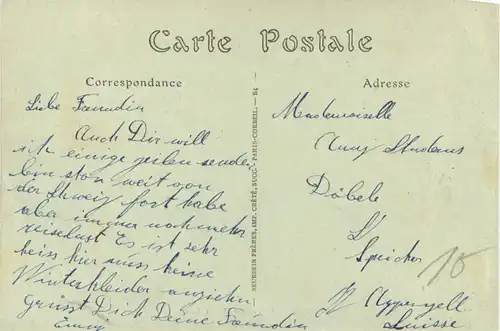 Carte Postale
Correspondance
Liebe Freundin
Auch Dir will
ich einige zeilen senden
bin schon weit von
der Schweiz fort habe
aber immer noch mehr
reiselust Es ist sehr
heiss hier muss keine
Winterkleider anziehn
grüsst Dich Deine Freundin
Emmy
NEURDEIN FRÈRES, IMP. CRÉTÉ, SUCC. - PARIS-CORBEIL. - B4
Adresse
Mademoiselle
Anny
Döbele
Speicher
Appenzell
Suisse
10